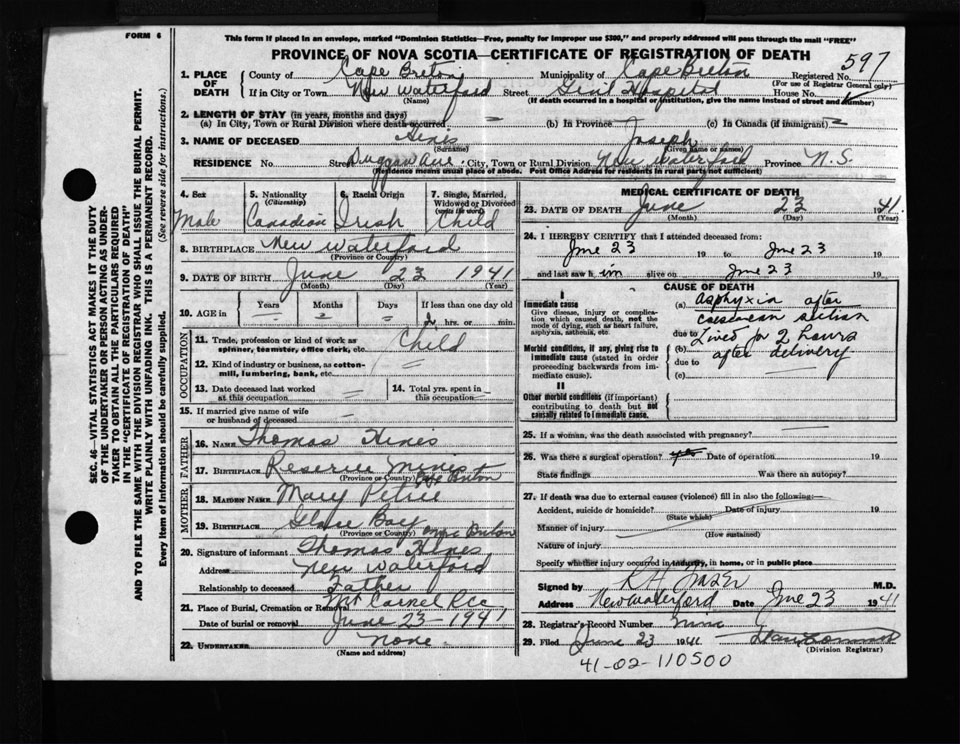 FORM 6
This form if placed in an envelope, marked "Dominion Statistics—Free, penalty for improper use $300," and properly addressed will pass through the mail "FREE"
PROVINCE OF NOVA SCOTIA—CERTIFICATE OF REGISTRATION OF DEATH
597
1. PLACE OF DEATH County of Cape Breton Municipality of Cape Breton Registered No.
(For use of Registrar General only)
If in City or Town New Waterford Street Genil Hospital House No.
(Name) (If death occurred in a hospital or institution, give the name instead of street and number)
2. LENGTH OF STAY (in years, months and days)
(a) In City, Town or Rural Division where death occurred — (b) In Province (c) In Canada (if immigrant)
3. NAME OF DECEASED Hines Joseph
(Surname) (Given name or names)
RESIDENCE No. Street Duggan Ave. City, Town or Rural Division New Waterford Province N.S.
(Residence means usual place of abode. Post Office Address for residents in rural parts not sufficient)
4. Sex 5. Nationality (Citizenship) 6. Racial Origin 7. Single, Married, Widowed or Divorced (write the word)
Male Canadian Irish Child
8. BIRTHPLACE New Waterford
(Province or Country)
9. DATE OF BIRTH June 23 1941
(Month) (Day) (Year)
10. AGE in Years Months Days If less than one day old
— 2 hrs. or min.
OCCUPATION
11. Trade, profession or kind of work as spinner, teamster, office clerk, etc. Child
12. Kind of industry or business, as cotton-mill, lumbering, bank, etc.
13. Date deceased last worked at this occupation 14. Total yrs. spent in this occupation
15. If married give name of wife or husband of deceased
FATHER
16. NAME Thomas Hines
17. BIRTHPLACE Reserve Mines Cape Breton
(Province or Country)
MOTHER
18. MAIDEN NAME Mary Petrie
19. BIRTHPLACE Glace Bay Cape Breton
(Province or Country)
20. Signature of informant Thomas Hines
Address New Waterford
Relationship to deceased Father
21. Place of Burial, Cremation or Removal Mt Carmel
Date of burial or removal June 23 - 1941
22. UNDERTAKER None
(Name and address)
MEDICAL CERTIFICATE OF DEATH
23. DATE OF DEATH June 23 1941
(Month) (Day) (Year)
24. I HEREBY CERTIFY that I attended deceased from:
June 23 19 to June 23 19
and last saw h im alive on June 23 19
CAUSE OF DEATH
I
Immediate cause
Give disease, injury or complication which caused death, not the mode of dying, such as heart failure, asphyxia, asthenia, etc.
(a) Asphyxia after
caesarean section
due to Lived for 2 hours
Morbid conditions, if any, giving rise to immediate cause (stated in order proceeding backwards from immediate cause).
(b) after delivery
due to
(c)
II
Other morbid conditions (if important) contributing to death but not causally related to immediate cause.
25. If a woman, was the death associated with pregnancy?
26. Was there a surgical operation? yes Date of operation 19
State findings Was there an autopsy?
27. If death was due to external causes (violence) fill in also the following:—
Accident, suicide or homicide? Date of injury 19
(State which)
Manner of injury
(How sustained)
Nature of injury
Specify whether injury occurred in industry, in home, or in public place
Signed by M.D.
Address New Waterford Date June 23 1941
28. Registrar's Record Number
29. Filed June 23 1941
(Division Registrar)
41-02-110500
SEC. 46—VITAL STATISTICS ACT MAKES IT THE DUTY
OF THE UNDERTAKER OR PERSON ACTING AS UNDER-
TAKER TO OBTAIN ALL THE PARTICULARS REQUIRED
IN THE "CERTIFICATE OF REGISTRATION OF DEATH"
AND TO FILE THE SAME WITH THE DIVISION REGISTRAR WHO SHALL ISSUE THE BURIAL PERMIT.
WRITE PLAINLY WITH UNFADING INK. THIS IS A PERMANENT RECORD.
Every item of information should be carefully supplied. (See reverse side for instructions.)